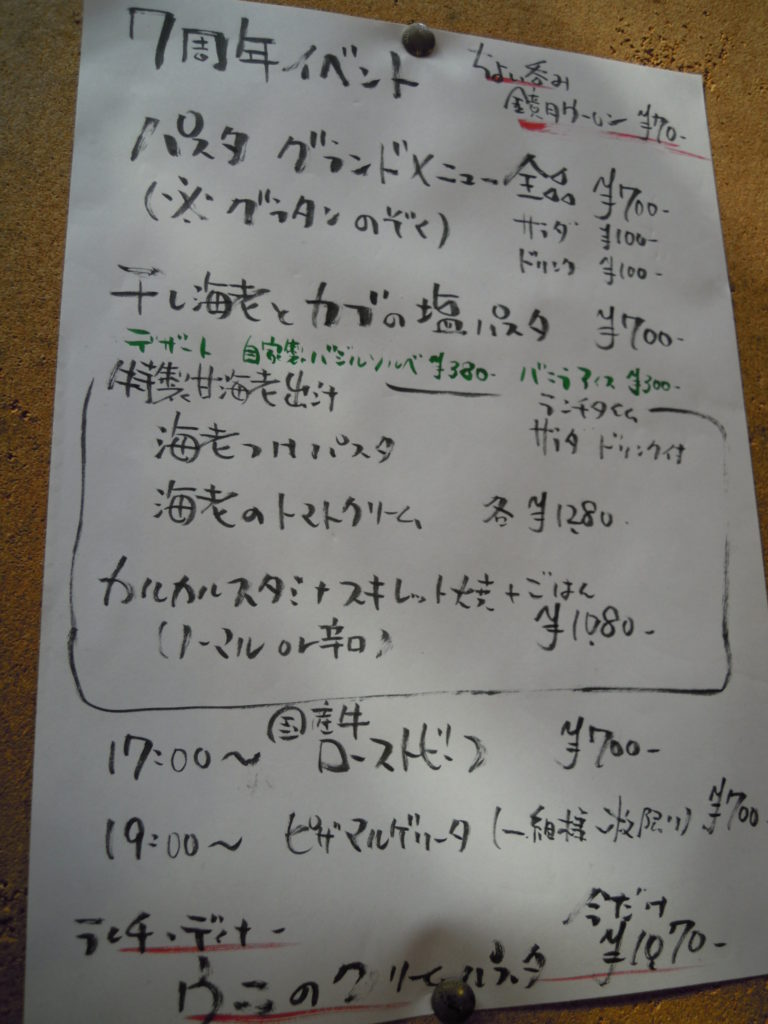 7周年イベント
ちょい呑み
鏡月ウーロン ¥70-
パスタ グランドメニュー全品 ¥700-
(※グラタンのぞく)
サラダ ¥100-
ドリンク ¥100-
干し海老とカブの塩パスタ ¥700-
デザート 自家製バジルソルベ ¥380- バニラアイス ¥300-
特製甘海老出汁
ランチタイム
サラダ ドリンク付
海老つけパスタ
海老のトマトクリーム 各¥1280-
カルカルスタミナスキレット焼+ごはん
(ノーマル or 辛口) ¥1080-
17:00〜 国産牛ローストビーフ ¥700-
19:00〜 ピザマルゲリータ (一組様一枚限り) ¥700-
ランチ・ディナー
今だけ
ウニのクリームパスタ ¥1070-